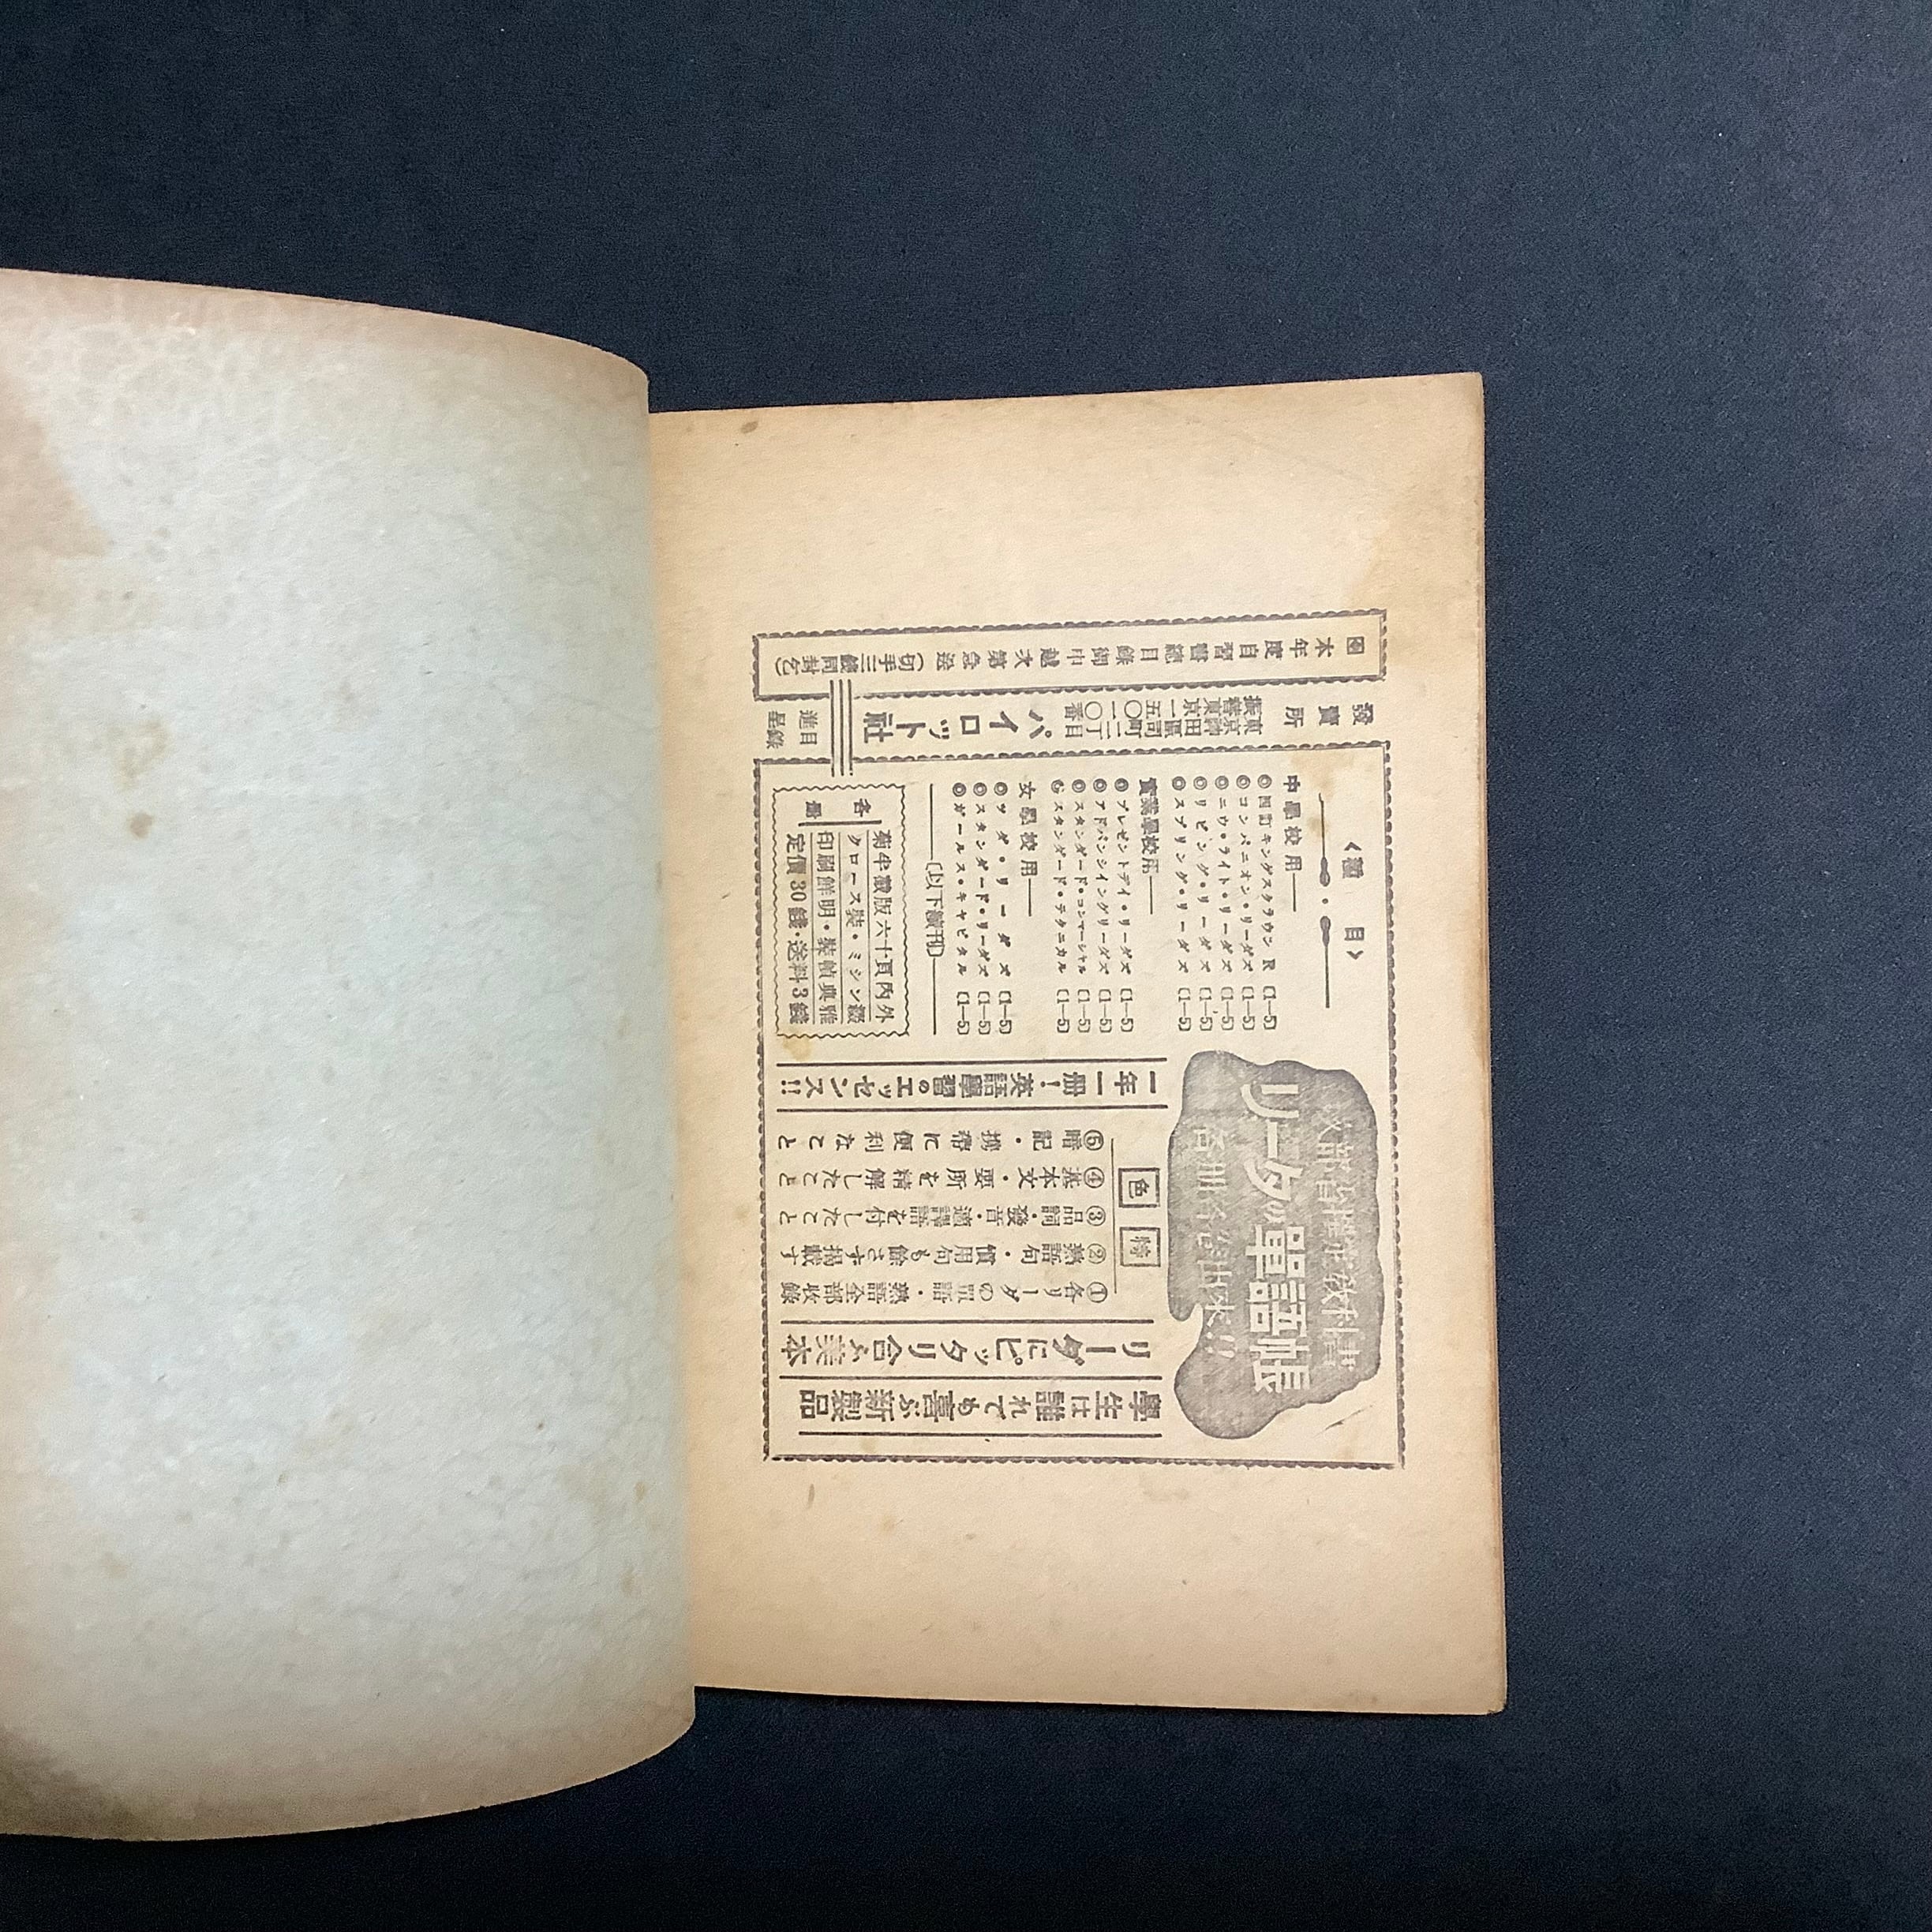 文部省標準教科書
リーダの單語帳
各冊今忽出來!!
學生は誰れでも喜ぶ新製品
リーダにピッタリ合ふ美本
特色
①各リーダの單語・熟語全部收錄
②熟語句・慣用句も餘さず揭載す
③品詞・發音・適譯語を付したこと
④基本文・要所を精解したこと
⑤暗記・携帶に便利なこと
一年一冊!英語學習のエッセンス!!
〈種目〉
中學校用
●四訂キングスクラウンR〔1—5〕
●コンパニオン・リーダズ〔1—5〕
●ニウ・ライト・リーダズ〔1—5〕
●リビング・リーダズ〔1—5〕
●スプリング・リーダズ〔1—5〕
實業學校用
●プレゼントデイ・リーダズ〔1—5〕
●アドバンシイングリーダズ〔1—5〕
●スタンダード・コンマーシャル〔1—5〕
●スタンダード・テクニカル〔1—5〕
女學校用
●ツダ・リーダズ〔1—5〕
●スタンダード・リーダズ〔1—5〕
●ガールス・キャピタル〔1—5〕
〔以下續刊〕
各冊
菊半截版六十頁內外
クロース裝・ミシン綴
印刷鮮明・裝幀典雅
定價30錢・送料3錢
發賣所
東京神田區司町二丁目
振替東京一五〇一〇番
パイロット社
目錄進呈
圖本年度自習書總目錄御申越次第急送(切手三錢同封乞)